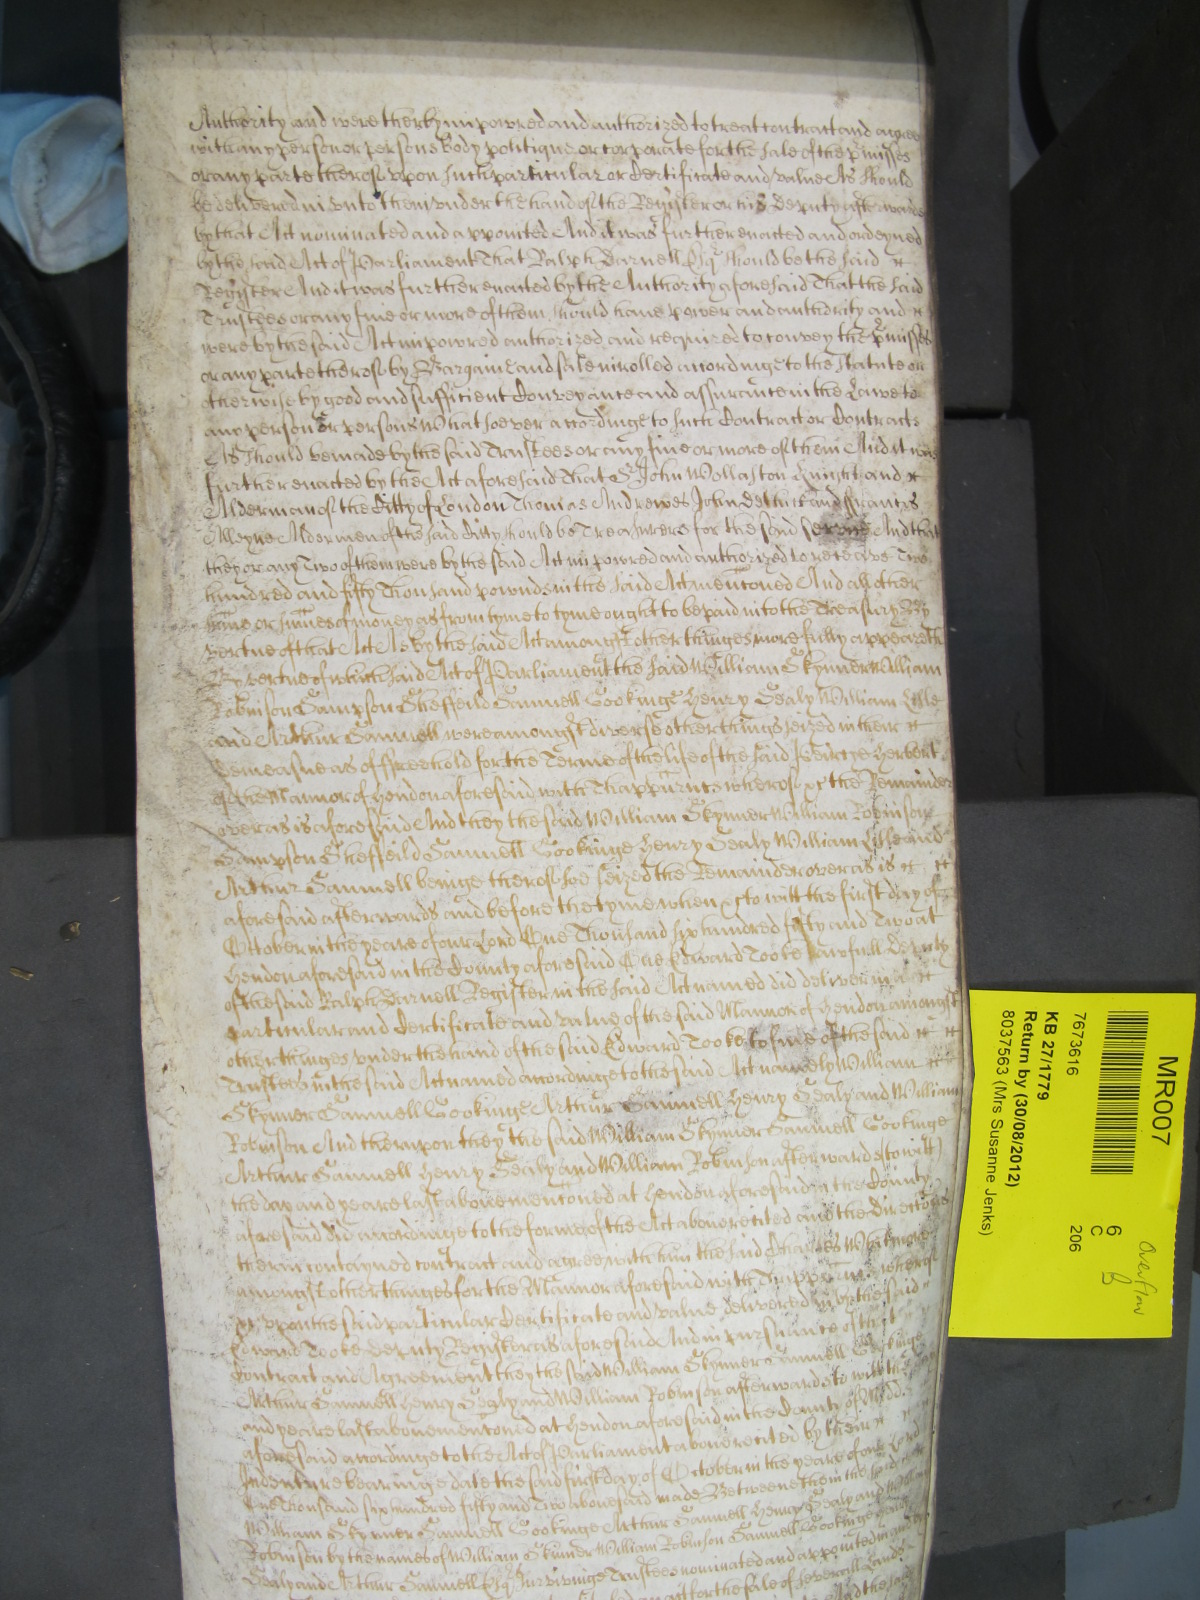 Authority and were therby impowred and authorized to treat contract and agree
with any person or persons Body politique or corporate for the sale of the p'misses
or any parte therof upon such particular or Certificate and value As should
be delivered in unto them under the hand of the Register or his Deputy afterwards
by that Act nominated and appointed And it was further enacted and ordeyned
by the said Act of Parliament That Ralph Darnell Esqr should be the said
Register And it was further enacted by the Authority aforesaid That the said
Trustees or any five or more of them should have power and authority and
were by the said Act impowred authorized and required to convey the p'misses
or any parte therof by Bargaine and sale inrolled accordinge to the statute or
otherwise by good and sufficient Conveyance and assurance in the Lawe to
any person or persons whatsoever accordinge to such Contract or Contracts
As should be made by the said Trustees or any five or more of them And it was
further enacted by the Act aforesaid That Sr John Wollaston Knight and
Alderman of the Citty of London Thomas Andrewes John Dethick and Francis
Alleyne Aldermen of the said Citty should be Treasurers for the said service And that
they or any Two of them were by the said Act impowred and authorized to receave Two
hundred and fifty Thousand pownds in the said Act mentioned And all other
sume or sumes of money as from tyme to tyme ought to be paid into the Treasury By
vertue of that Act As by the said Act amongst other thinges more fully appeareth
By vertue of which said Act of Parliament the said William Skynner William
Robinson Sampson Sheffeild Samuell Gookinge Henry Sealy William Lisle
and Arthur Samwell were amongst diverse other things seized in their
demeasne as of Freehold for the Terme of the life of the said Peircye Herbert
of the Mannor of Hendon aforesaid with Thappurten'ces wherof &c the Remainder
over as is aforesaid And they the said William Skynner William Robinson
Sampson Sheffeild Samuell Gookinge Henry Sealy William Lisle and
Arthur Samwell beinge therof soe seized the Remainder over as is
aforesaid afterwards and before the tyme when &c to witt the first day of
October in the yeare of our Lord One Thousand six hundred fifty and Two at
Hendon aforesaid in the County aforesaid One Edward Tooke lawfull Deputy
of the said Ralph Darnell Register in the said Act named did deliver in a
particular and Certificate and value of the said Mannor of Hendon amongst
other thinges under the hand of the said Edward Tooke to five of the said
Trustees in the said Act named accordinge to the said Act namely William
Skynner Samuell Gookinge Arthur Samwell Henry Sealy and William
Robinson And therupon they the said William Skynner Samuell Gookinge
Arthur Samwell Henry Sealy and William Robinson afterwards (to witt)
the day and yeare last above mentioned at Hendon aforesaid in the County
aforesaid did accordinge to the forme of the Act above recited and the Directions
therin contayned contract and agree with him the said Charles Whitmore
amongst other thinges for the Mannor aforesaid with Thappurten'ces wherof
&c upon the said particular Certificate and value delivered in by the said
Edward Tooke Deputy Register as aforesaid And in pursuance of that
Contract and Agreement they the said William Skynner Samuell Gookinge
Arthur Samwell Henry Sealy and William Robinson afterwards to witt the day
and yeare last above mentioned at Hendon aforesaid in the County of Midd.
aforesaid accordinge to the Act of Parliament above recited by their
Indenture bearinge date the said first day of October in the yeare of our Lord
One Thousand six hundred fifty and Two abovesaid made Betweene them the said
William Skynner Samuell Gookinge Arthur Samwell Henry Sealy and William
Robinson by the names of William Skinner William Robinson Samuell Gookinge Henry
Sealy and Arthur Samwell Esqrs survivinge Trustees nominated and appointed in and by
for the sale of severall Lands
MR007
7673616
KB 27/1779
Return by (30/08/2012)
8037563 (Mrs Susanne Jenks)
6
C
206
Overflow
B